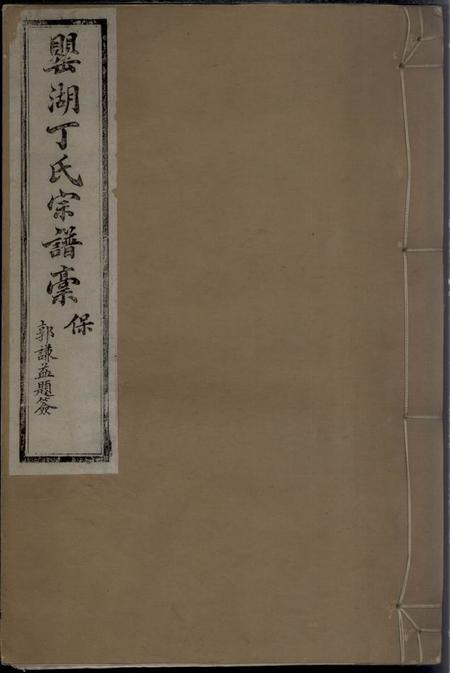 甖湖丁氏宗譜稾
保
郭謙益題簽